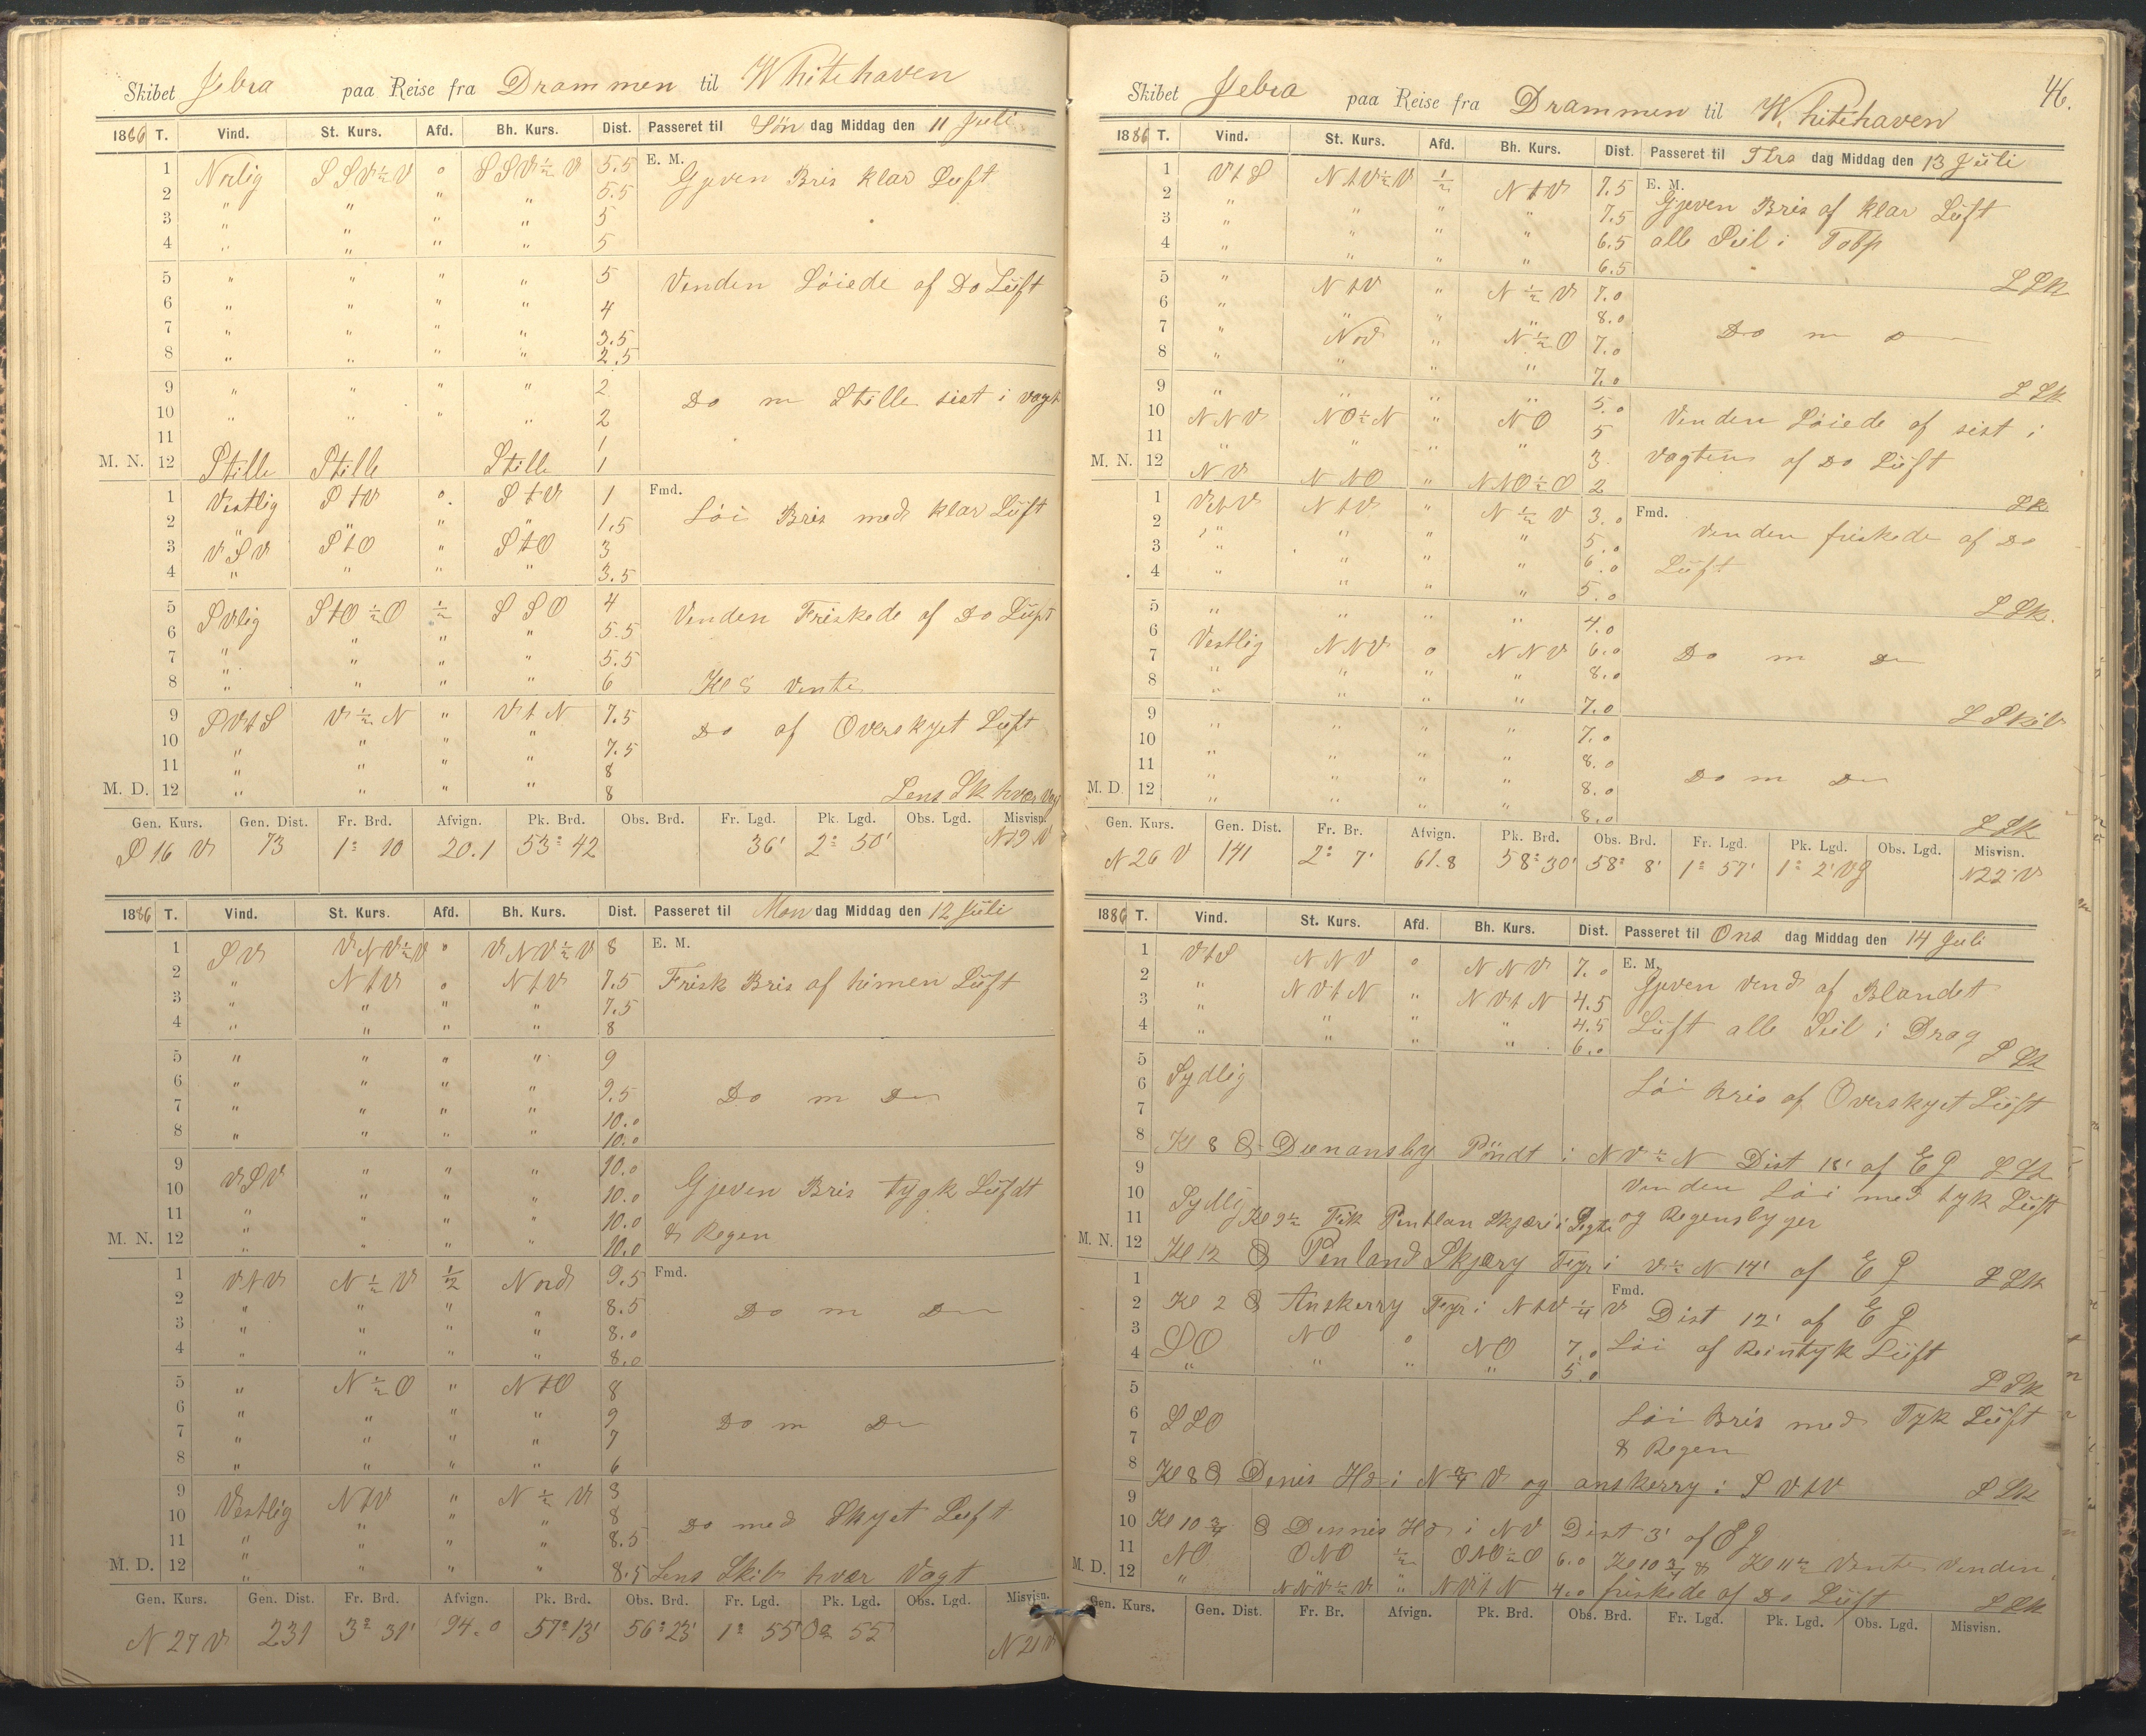 Skibet Zebra paa Reise fra Drammen til Whitehaven
1886 T. Vind. St. Kurs. Afd. Bh. Kurs. Dist. Passeret til Søn dag Middag den 11 Juli
1 Norlig SSV½V 0 SSV½V 5.5 E. M. Gjeven Bris klar Luft
2 " " " " 5.5
3 " " " " 5
4 " " " " 5
5 " " " " 5 Venden Løiede af Do Luft
6 " " " " 4
7 " " " " 3.5
8 " " " " 2.5
9 " " " " 2 Do m Stille sist i vagt
10 " " " " 2
11 1
M. N. 12 Stille Stille Stille 1
1 Vestlig StV 0 StV 1 Fmd. Løi Bris med klar Luft
2 " " " " 1.5
3 VSV StO " StO 3
4 " " " " 3.5
5 SVlig StO½O ½ SSO 4 Venden Friskede af Do Luft
6 " " " 5.5
7 " " " " 5.5
8 " " " " 6 Kl 8 Vente
9 SVtS V½N " VtN 7.5 Do af Overskyet Luft
10 " " " " 7.5
11 " " " " 8
M. D. 12 " " " " 8 Lens Sk hver Vag
Gen. Kurs. Gen. Dist. Fr. Brd. Afvign. Pk. Brd. Obs. Brd. Fr. Lgd. Pk. Lgd. Obs. Lgd. Misvisn.
S 16 V 73 1° 10 20.1 53° 42 36' 2° 50' N19 V
1886 T. Vind. St. Kurs. Afd. Bh. Kurs. Dist. Passeret til Man dag Middag den 12 Juli
1 SV VNV½V 0 VNV½V 8 E. M.
2 " NtV 0 NtV 7.5 Frisk Bris af himen Luft
3 " " " " 7.5
4 " " " " 8
5 " " " " 9
6 " " " " 9.5 Do m Do
7 " " " " 10.0
8 " " " " 10.0
9 VSV " " " 10.0
10 " " " 10.0 Gjeven Bris tygk Lufdt
11 " " " " 10.0
M. N. 12 " " " " 10.0 & Regen
1 VtV N½V ½ Nord 9.5 Fmd.
2 " " " " 8.5 Do m Do
3 " " " " 8.0
4 " " " " 8.0
5 " N½O " NtO 8
6 " " " " 9 Do m Do
7 " " " " 7
8 " " " " 6
9 Vestlig NtV " N½V 8
10 " " " 8 Do med Skyet Luft
11 " " " " 8.5
M. D. 12 " " " " 8.5 Lens Skib hver Vagt
Gen. Kurs. Gen. Dist. Fr. Brd. Afvign. Pk. Brd. Obs. Brd. Fr. Lgd. Pk. Lgd. Obs. Lgd. Misvisn.
N 27 V 231 3° 31' 94.0 57° 13' 56° 23' 1° 55' 0° 55' N 21 V
46.
Skibet Zebra paa Reise fra Drammen til Whitehaven
1886 T. Vind. St. Kurs. Afd. Bh. Kurs. Dist. Passeret til Tirs dag Middag den 13 Juli
1 VtS NtV½V ½ NtV 7.5 E. M. Gjeven Bris af klar Luft
2 " " " " 7.5
3 " " " " 6.5 alle Seil i Top
4 " " " " 6.5 LSk
5 " NtV " N½V 7.0
6 " " " " 8.0 Do m o
7 " Nord " N½O 7.0
8 " " " " 7.0 LSk
9 " " " " 5.0 Venden Løiede af sist i
10 NNV NO½N " NO 5
11 " " " " 3 Vagten af Do Luft
M. N. 12 NV NNO " NNO½O 2 LSk
1 VtV NtV " N½V 3.0 Fmd. Venden friskede af Do
2 " " " " 5.0
3 " " " " 6.0 Luft
4 " " " " 5.0 LSk.
5 " " " " 4.0
6 Vestlig NNV 0 NNV 6.0 Do m Do
7 " " " " 8.0
8 " " " " 7.0 L Skib
9 " " " " 7.0
10 " " " " 8.0
11 " " " " 8.0 Do m Do
M. D. 12 " " " " 8.0 LSk
Gen. Kurs. Gen. Dist. Fr. Br. Afvign. Pk. Brd. Obs. Brd. Fr. Lgd. Pk. Lgd. Obs. Lgd. Misvisn.
N 26 V 141 2° 7' 61.8 58° 30' 58° 8' 1° 57' 1° 2' Vg N22° V
1886 T. Vind. St. Kurs. Afd. Bh. Kurs. Dist. Passeret til Ons dag Middag den 14 Juli
1 VtS NNV 0 NNV 7.0 E. M. Gjeven Vend af Blandet
2 " NVtN " NVtN 4.5
3 " " " " 4.5 Luft alle Seil i Drag
4 " " " " 6.0 LSk
5 Sydlig Løi Bris af Overskyet Luft
6
7
8 Kl 8 Dunansby Pöndt i NV½N Dist 18' af EG LSk
9 Venden Løi med tyk Luft
10 Sydlig
11 Kl 9½ Fik Pentlan Skjæri i Sigte og Regensbyger
M. N. 12 Kl 12 Penland Skjæry Fyr i V½N 14' af EG LSk
1 Fmd.
2 Kl 2 Anskerry Fyr i NtV¼V Dist 12' af EG
3 SO NO 0 NO 7.0 Løi af Reintyk Luft
4 " " " " 5.0 LSk
5
6 SSO Løi Bris med Tyk Luft
7 & Regen
8 Kl 8 Denis Hd i N¾V og anskerry i SVtV LSk
9
10 Kl 10¾ Dennis Hd i NV Dist 3' af EG
11 NO ONO ½ ONO½O 6.0 Kl 10¾ & Kl 11½ Vente Venden
M. D. 12 " NNV½V " NVtN 4.0 friskede af Do Luft LSk
Gen. Kurs. Gen. Dist. Fr. Br. Afvign. Pk. Brd. Obs. Brd. Fr. Lgd. Pk. Lgd. Obs. Lgd. Misvisn.